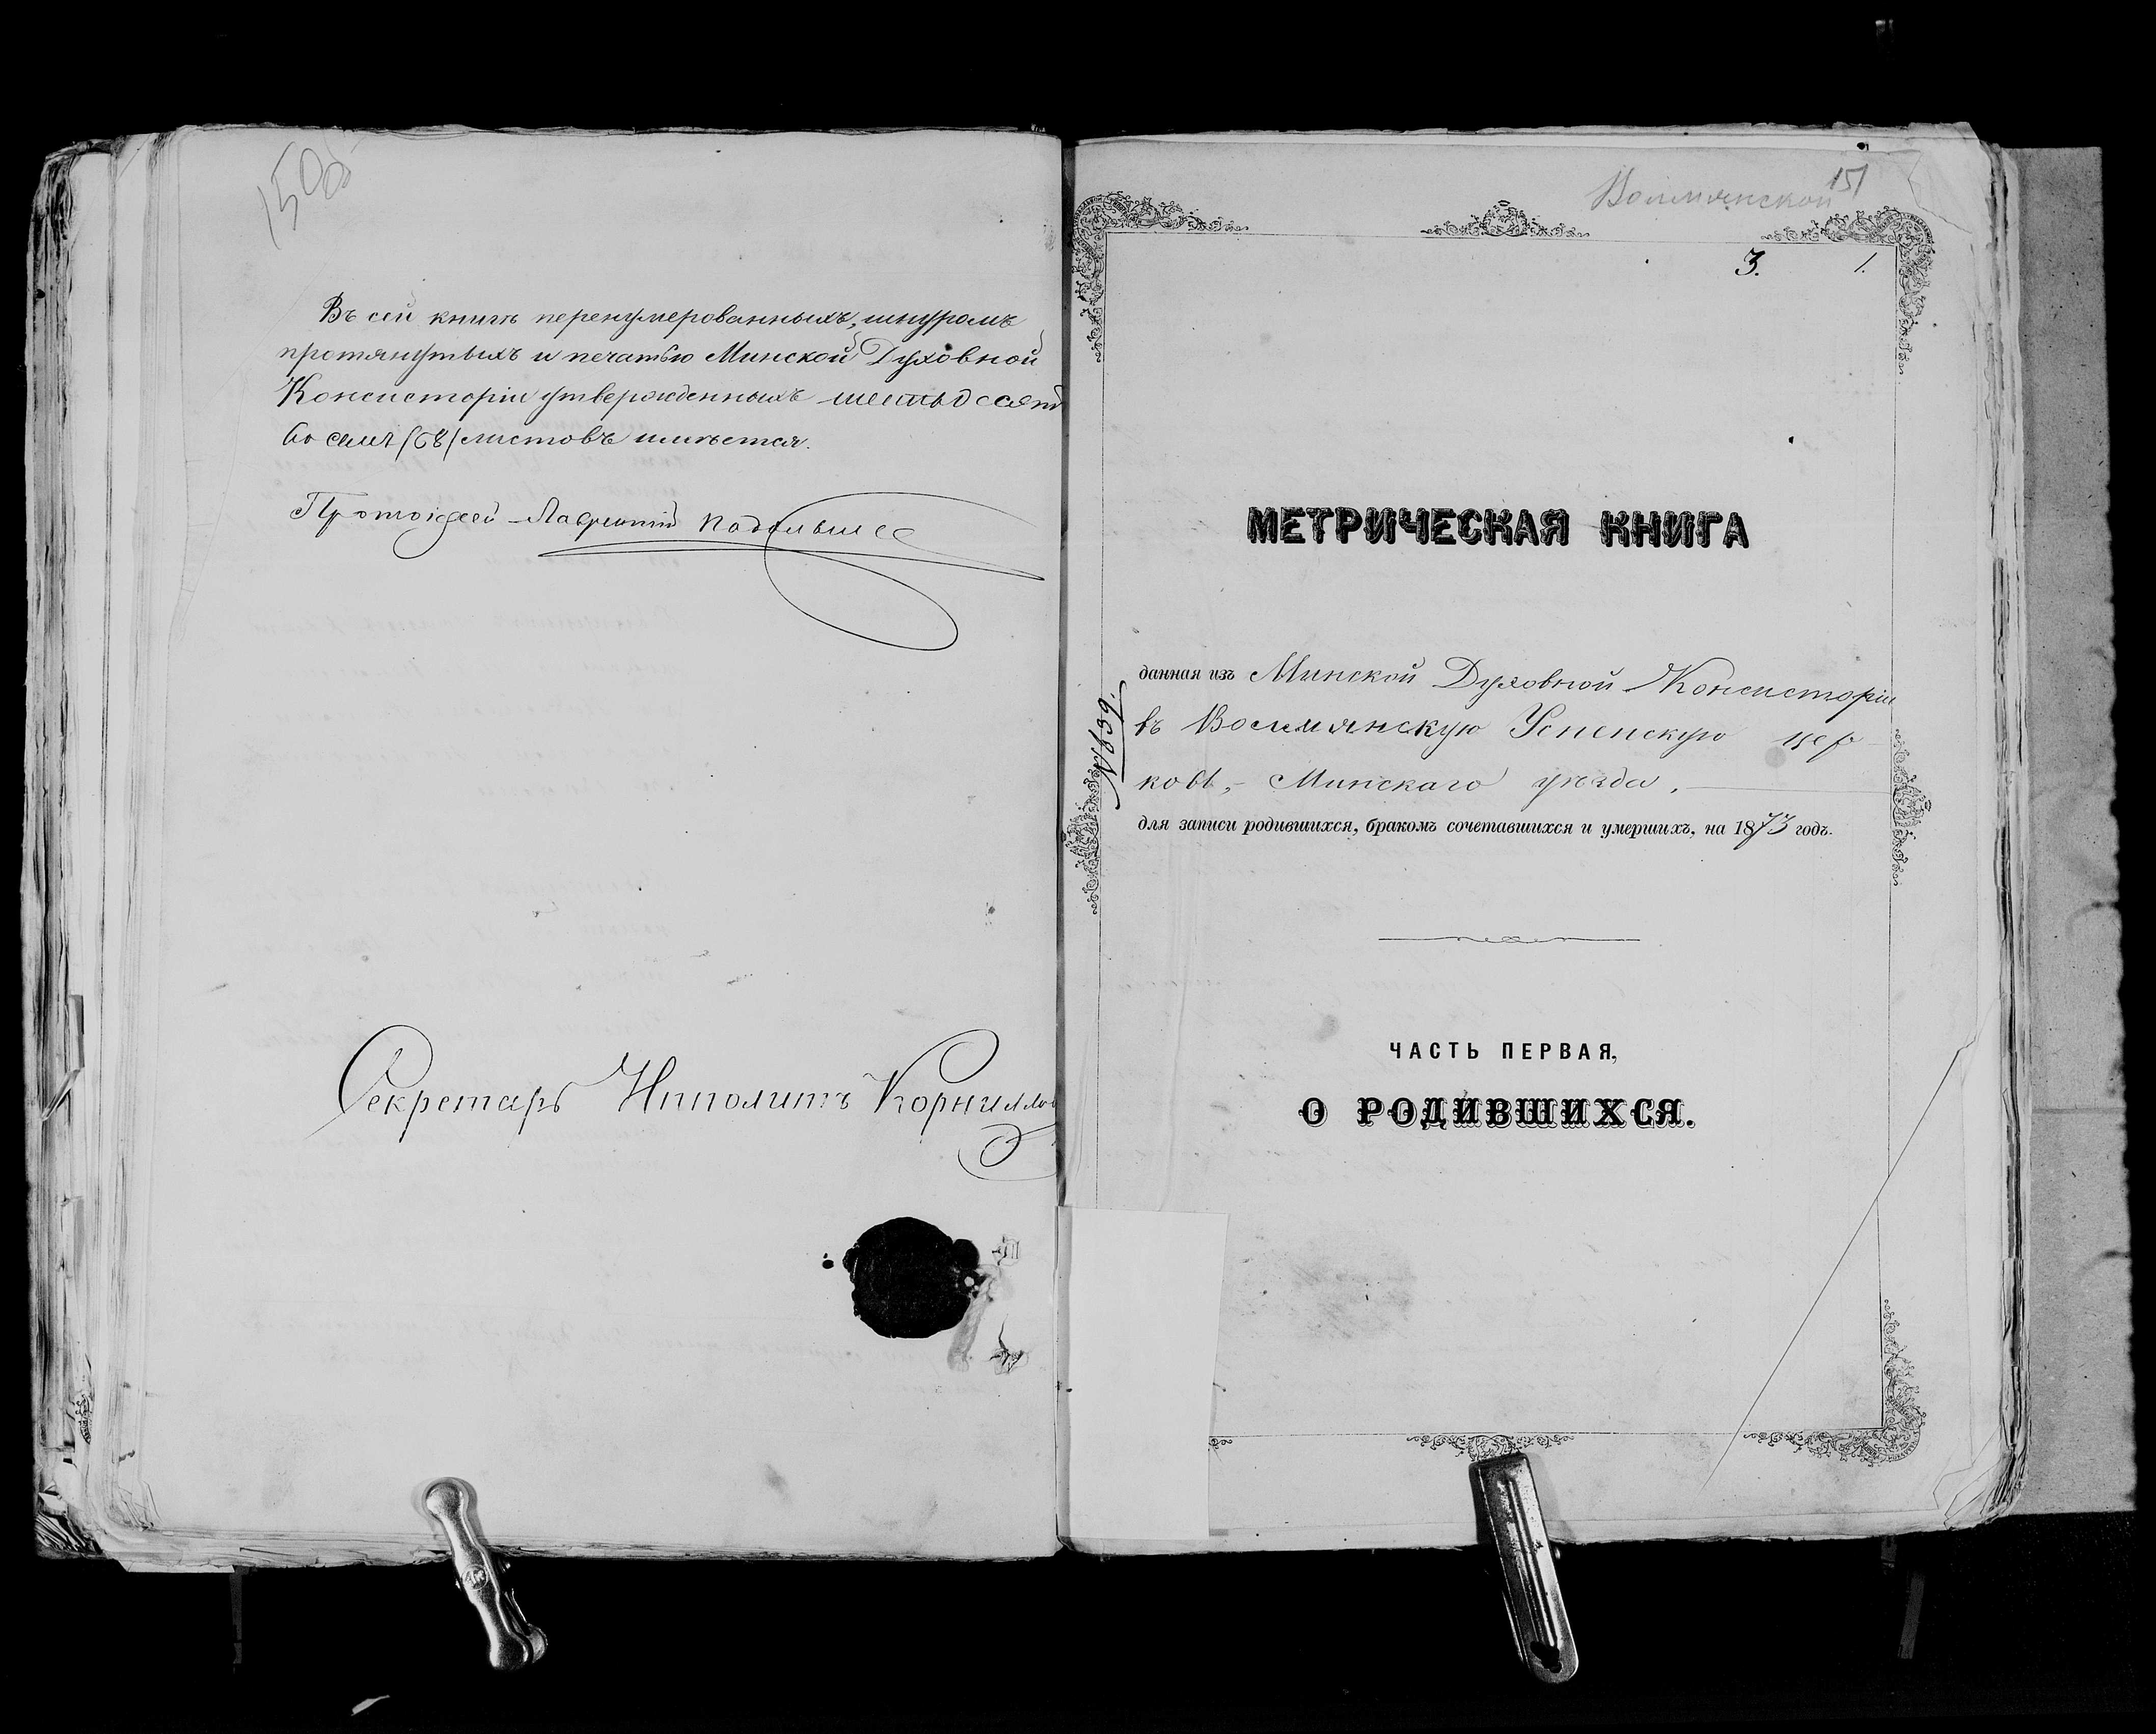 150 об
Въ сей книгѣ перенумерованныхъ, шнуромъ
протянутыхъ и печатью Минской Духовной
Консисторіи утвержденныхъ шестьдесятъ
восемь (68) листовъ имѣется.
Протоіерей Лаврентій
Секретарь Ипполитъ Корнилло
Волмянской 151
3. 1.
МЕТРИЧЕСКАЯ КНИГА
данная изъ Минской Духовной Консисторіи
въ Волмянскую Успенскую цер-
ковь, - Минскаго уѣзда.
№ 639.
для записи родившихся, бракомъ сочетавшихся и умершихъ, на 1873 годъ.
ЧАСТЬ ПЕРВАЯ,
О РОДИВШИХСЯ.